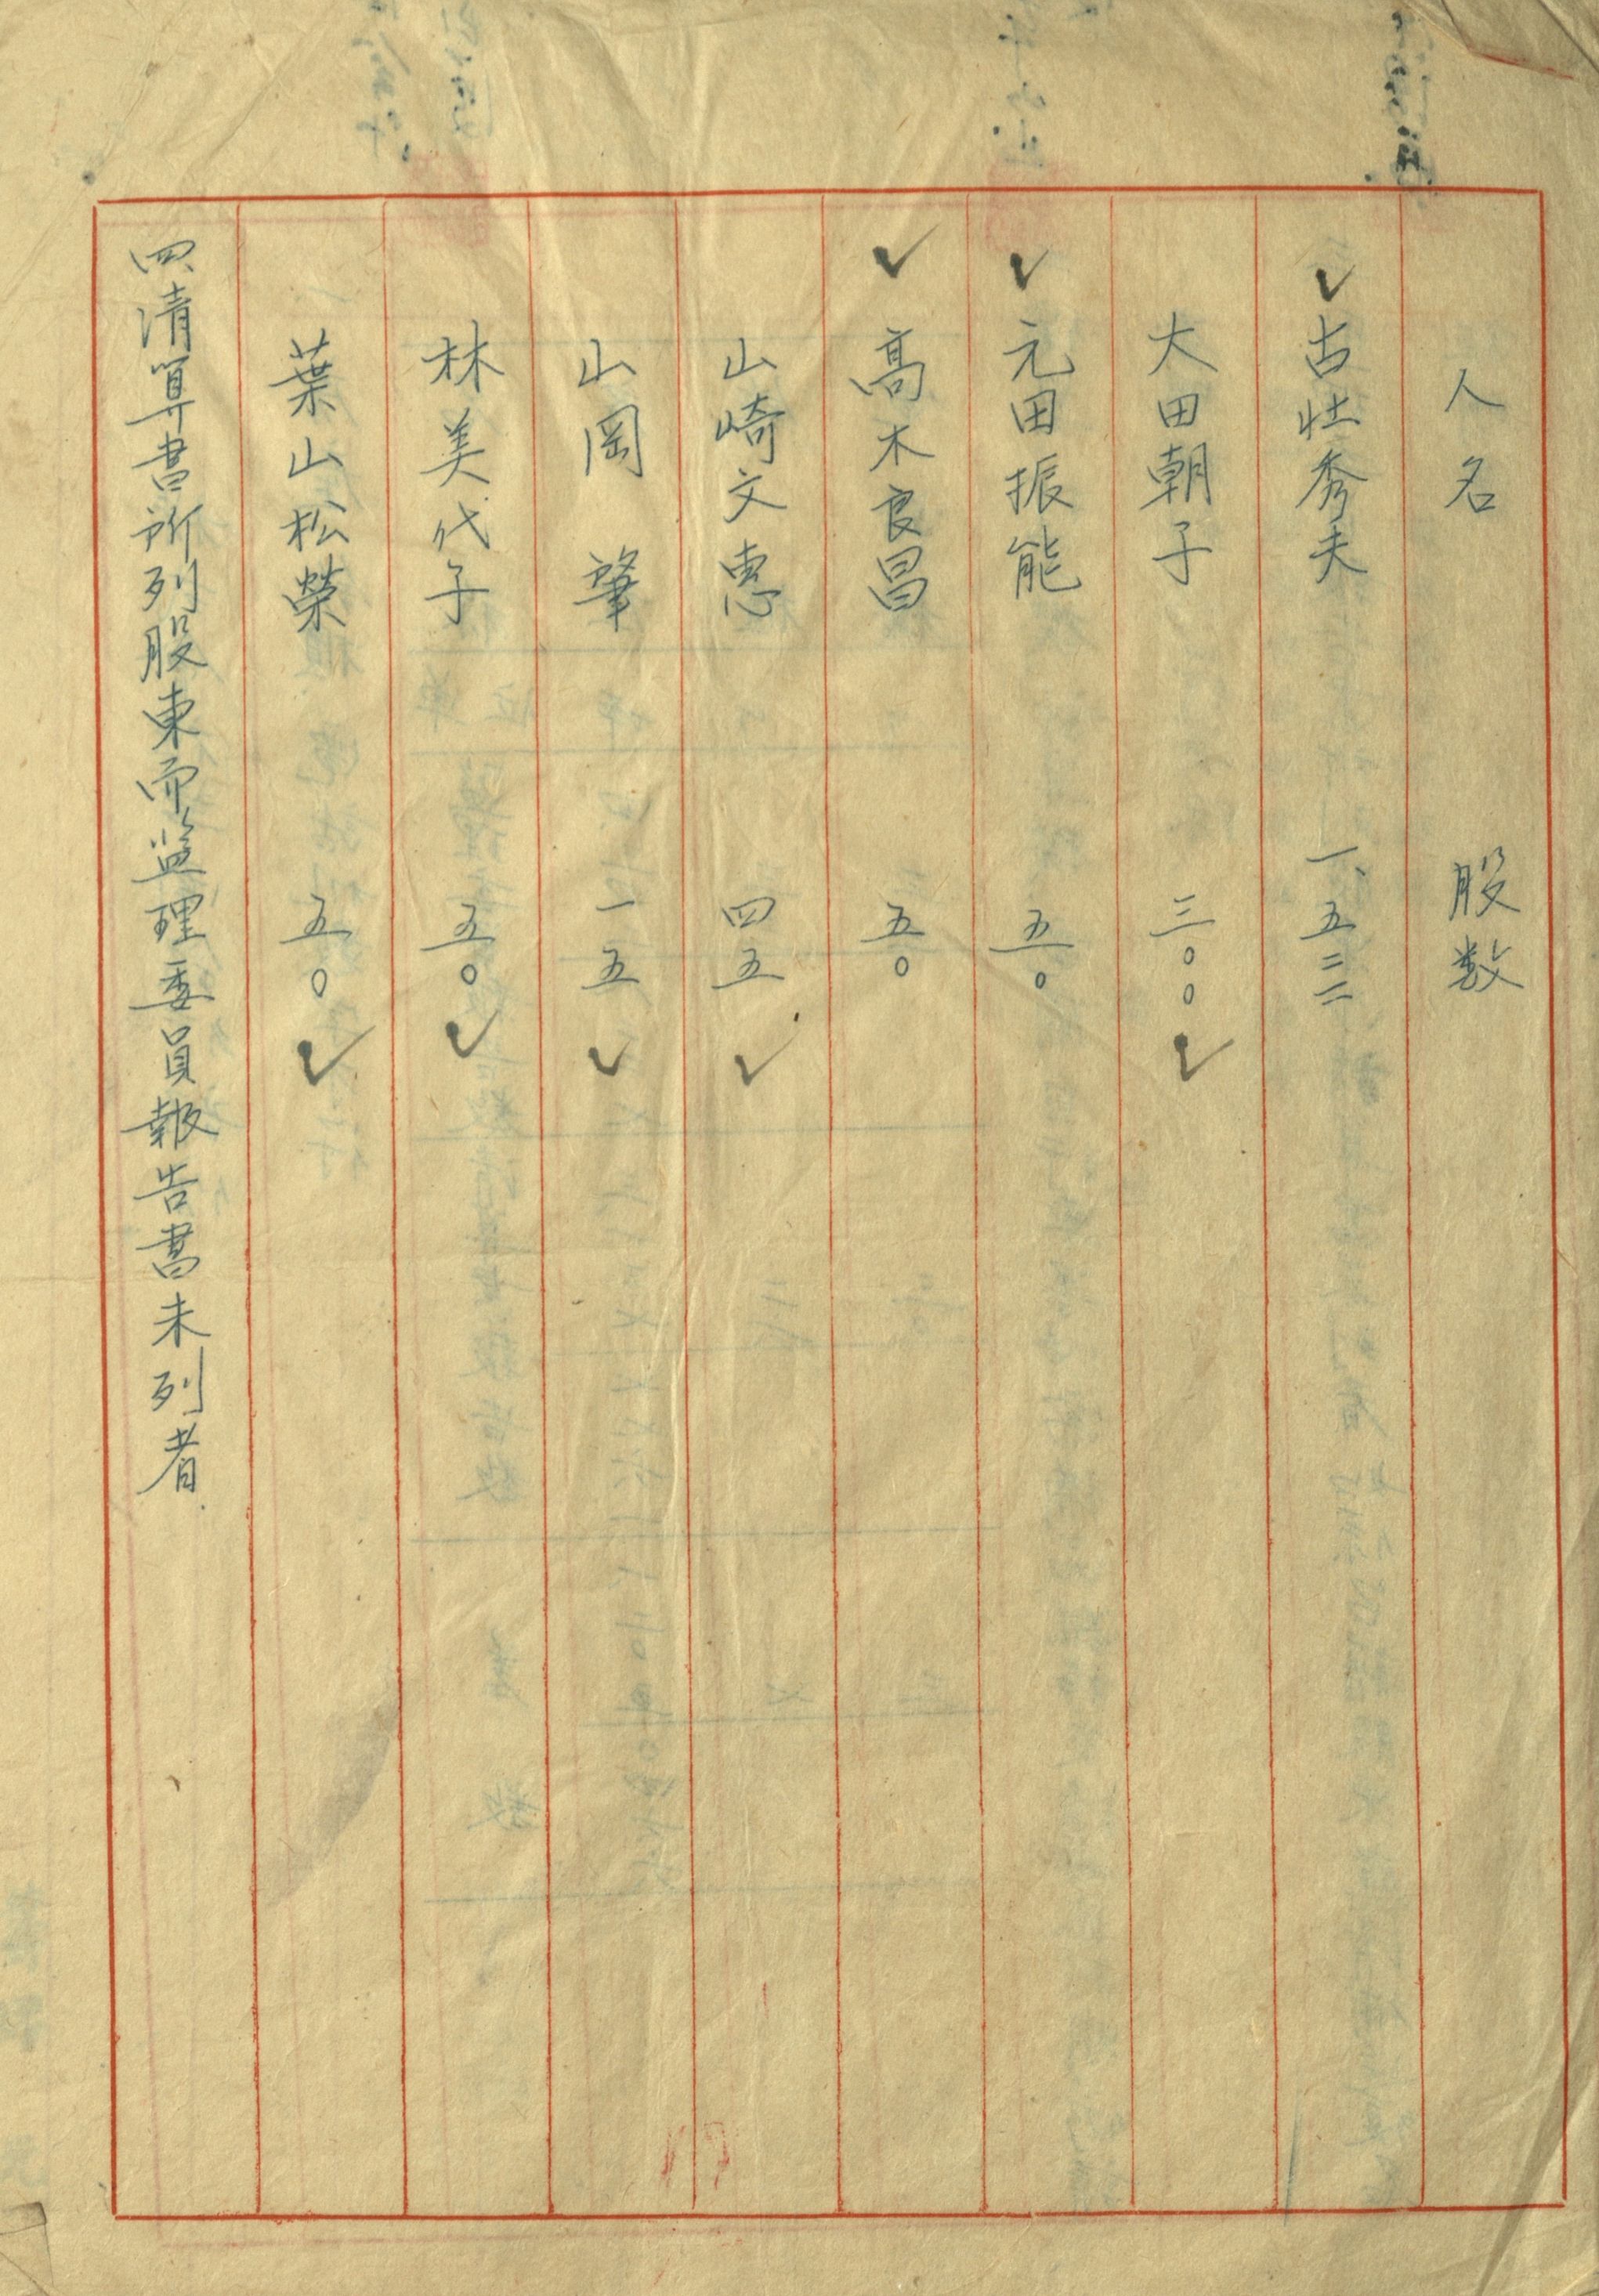 人名 股数
古壮秀夫 一、五二二
大田朝子 三〇〇
元田振能 五〇
高木良昌 五〇
山崎文惠 四五
山岡 肇 一五
林美代子 五〇
葉山松榮 五〇
四、清算書所列股東而監理委員報告書未列者